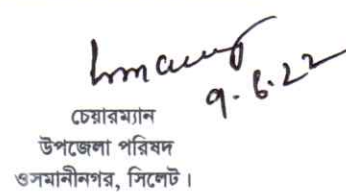 ৯.৬.২২
চেয়ারম্যান
উপজেলা পরিষদ
ওসমানীনগর, সিলেট।